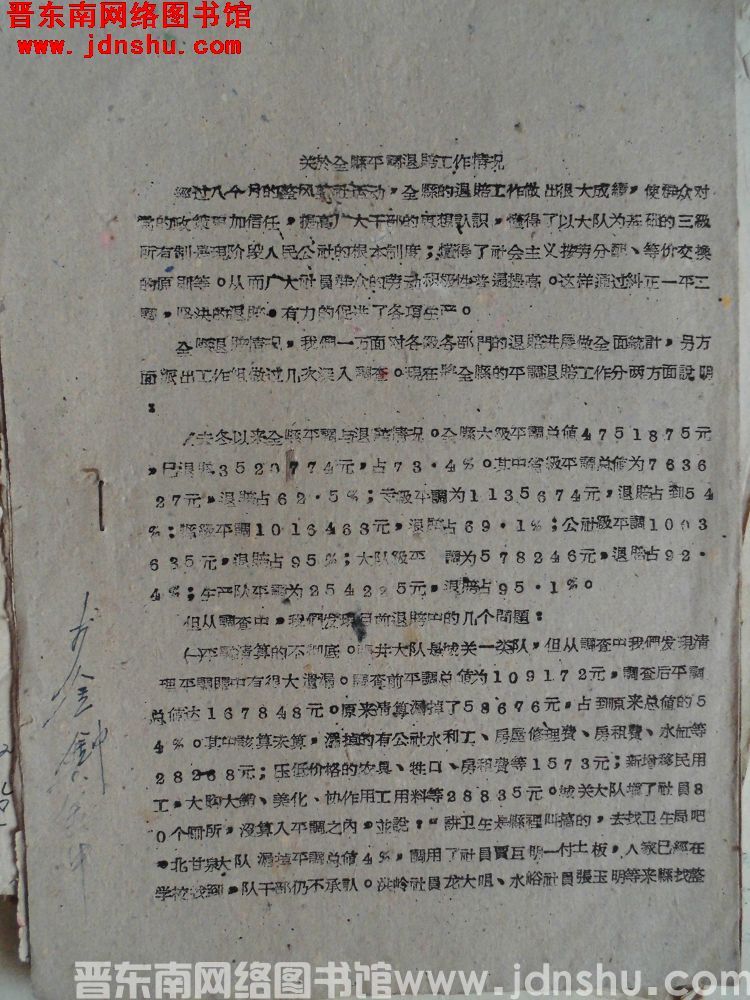 晋东南网络图书馆
www.jdnshu.com
关於全縣平調退賠工作情况
經过八个月的整风整社运动，全縣的退賠工作做出很大成績，使群众对
党的政策更加信任，提高广大干部的思想認識，懂得了以大队为基础的三級
所有制是現阶段人民公社的根本制度；懂得了社会主义按劳分配、等价交换
的原則等。从而广大社員群众的劳动积极性普遍提高。这样通过糾正一平二
調，坚决的退賠，有力的促进了各項生产。
全縣退賠情况，我們一方面对各級各部門的退賠进展做全面統計，另方
面派出工作組做过几次深入調查。現在將全縣的平調退賠工作分两方面說明
：
去冬以来全縣平調与退賠情况。全縣六級平調总值4751875元
，已退賠3520774元，占73.4%。其中省級平調总值为7636
27元，退賠占62.5%；专級平調为1135674元，退賠占到54
%；縣級平調1016468元，退賠占69.1%；公社級平調1003
635元，退賠占95%；大队級平 調为578246元，退賠占92.
4%；生产队平調为254225元，退賠占95.1%。
但从調查中，我們发現目前退賠中的几个問題：
(一)平調清算的不彻底。井大队是城关一类队，但从調查中我們发現清
理平調賬中有很大遺漏。調查前平調总值为109172元，調查后平調
总值达167848元。原来清算漏掉了58676元，占到原来总值的5
4%。其中該算未算，漏掉的有公社水利工、房屋修理費、房租費、水缸等
28268元；压低价格的农具、牲口、房租費等1573元；新增移民用
工，大购大銷、美化、协作用工用料等28835元。城关大队填了社員8
0个厠所，沒算入平調之內，並說："講卫生是縣裡叫搞的，去找卫生局吧
。北甘泉大队漏掉平調总值4%，調用了社員賈互期一付土板，人家已經在
学校找到，队干部仍不承认。洪岭社員龙大咀、水峪社員張玉明等来縣找整
晋东南网络图书馆www.jdnshu.com